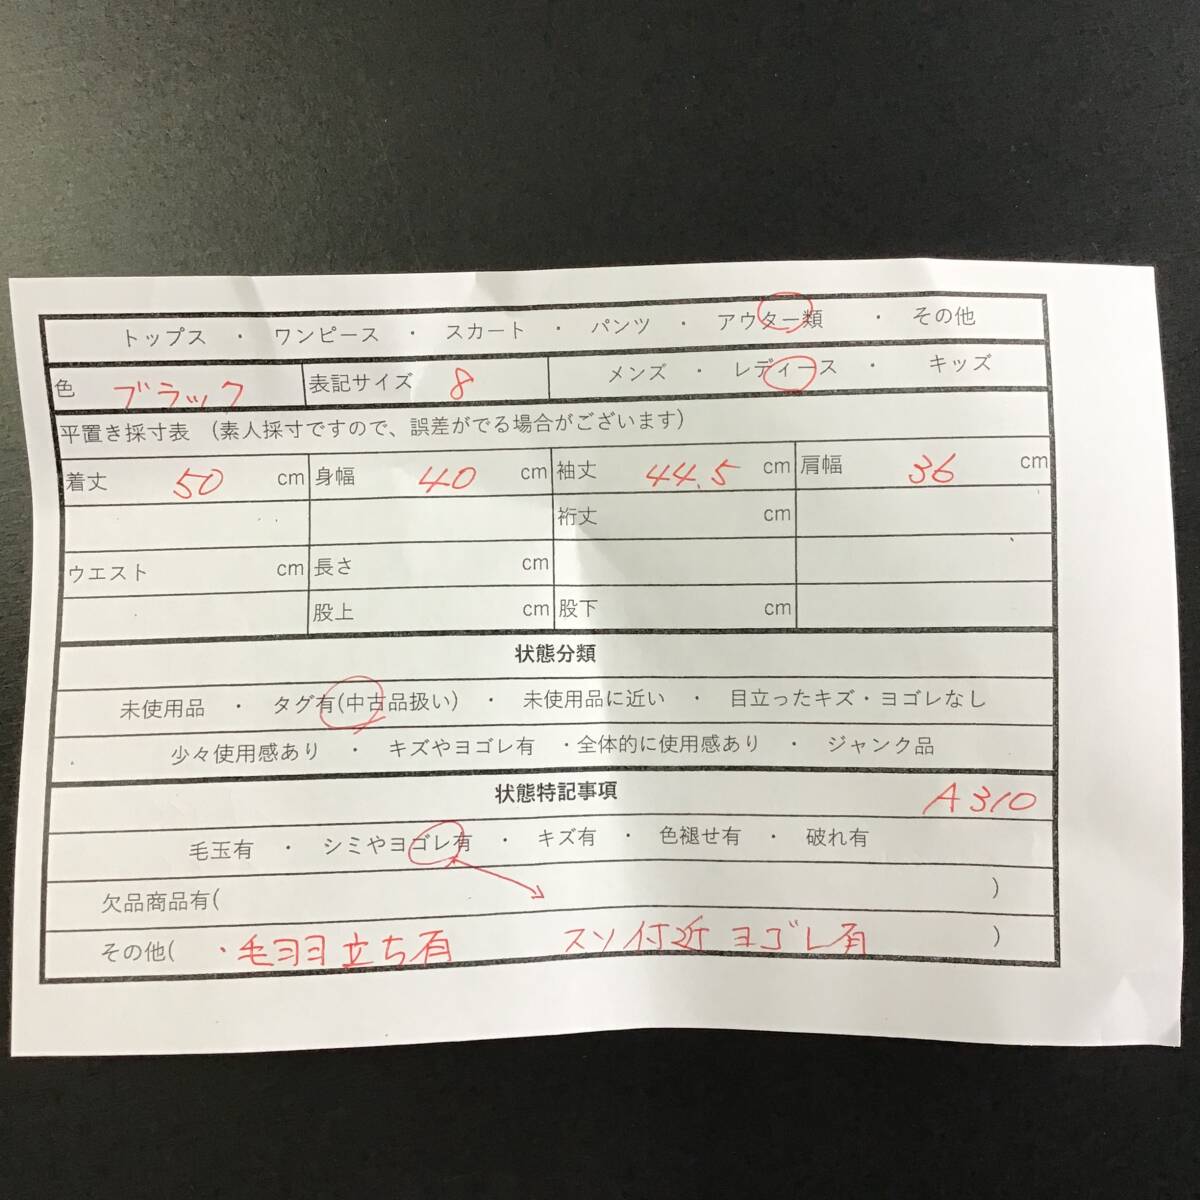 トップス ・ ワンピース ・ スカート ・ パンツ ・ アウター類 ・ その他
色 ブラック 表記サイズ 8 メンズ ・ レディース ・ キッズ
平置き採寸表 (素人採寸ですので、誤差がでる場合がございます)
着丈 50 cm 身幅 40 cm 袖丈 44.5 cm 肩幅 36 cm
裄丈 cm
ウエスト cm 長さ cm
股上 cm 股下 cm
状態分類
未使用品 ・ タグ有(中古品扱い) ・ 未使用品に近い ・ 目立ったキズ・ヨゴレなし
少々使用感あり ・ キズやヨゴレ有 ・全体的に使用感あり ・ ジャンク品
状態特記事項 A310
毛玉有 ・ シミやヨゴレ有 ・ キズ有 ・ 色褪せ有 ・ 破れ有
欠品商品有( )
その他( ・毛羽立ち有 スソ付近 ヨゴレ有 )